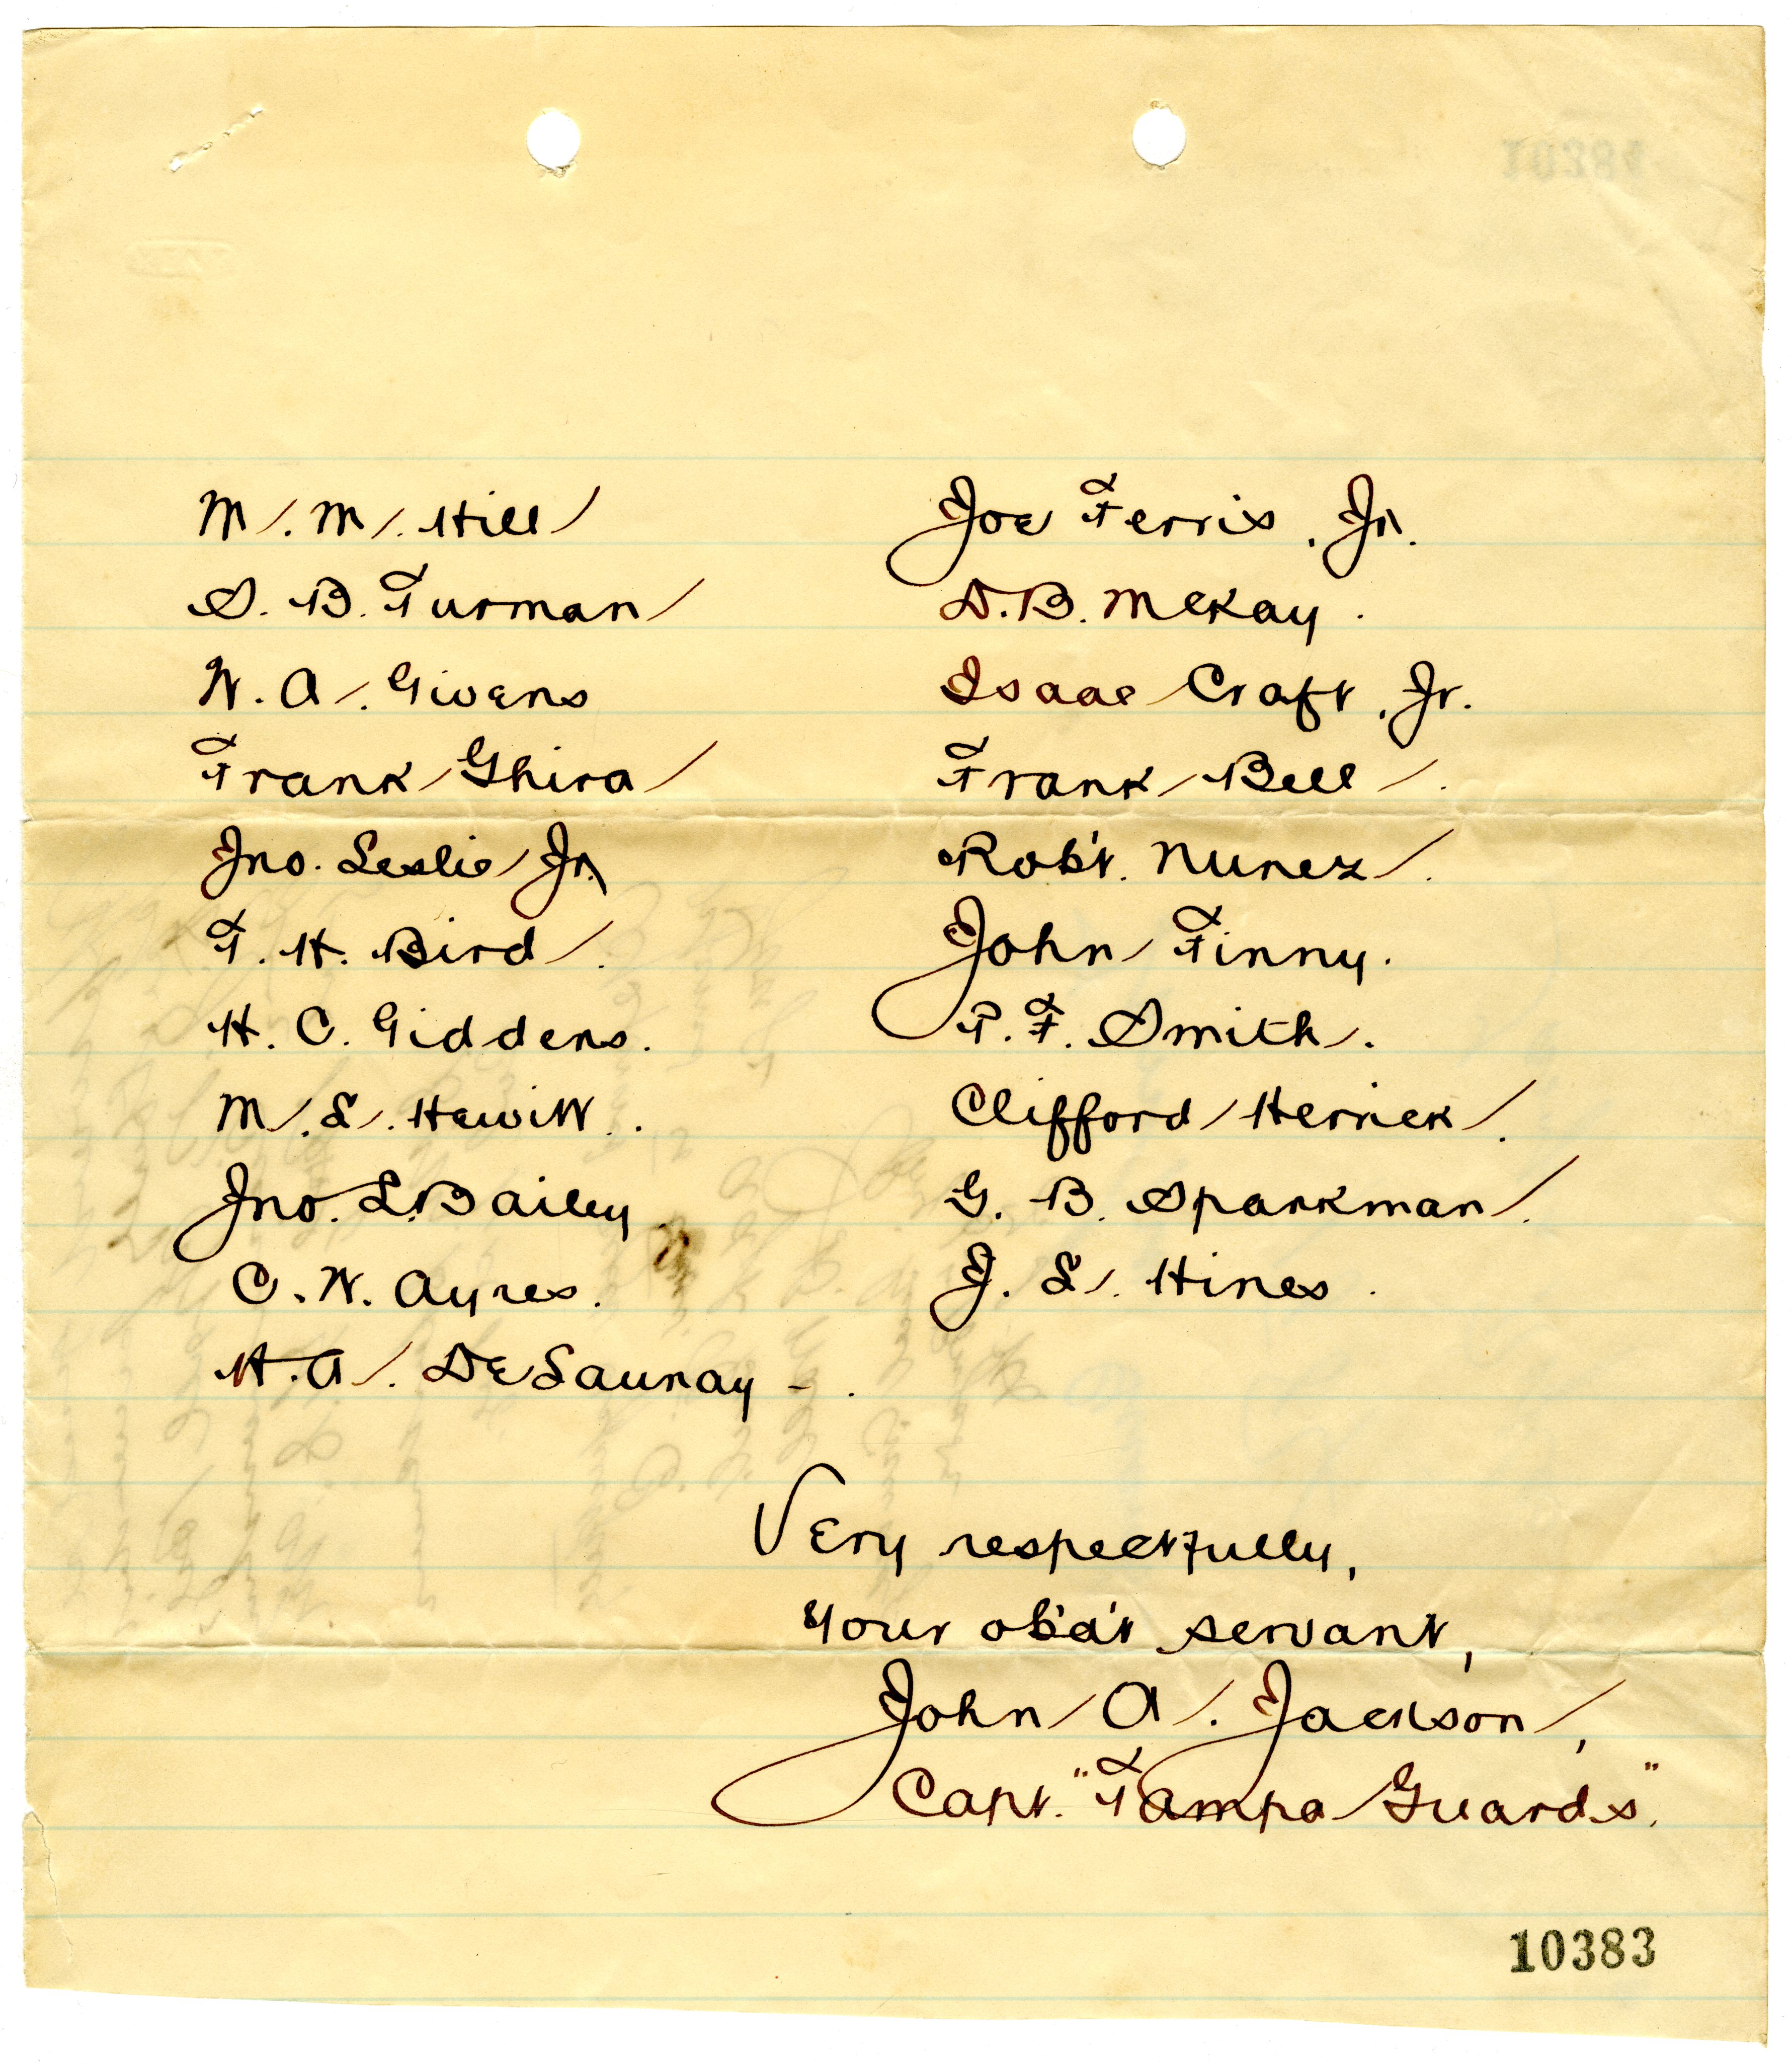 M. M. Hill
S. B. Turman
W. A. Givens
Frank Ghira
Jno. Leslie Jr.
T. H. Bird.
H. C. Giddens.
M. L. Hewitt.
Jno. L. Bailey
C. W. Ayres.
H. A. DeLaunay - .
Joe Ferris, Jr.
D. B. McKay.
Isaac Craft, Jr.
Frank Bell.
Rob't. Nunez.
John Finny.
P. F. Smith.
Clifford Herrick.
G. B. Sparkman.
J. L. Hines.
Very respectfully,
Your ob'd't servant,
John A. Jackson,
Capt. "Tampa Guards".
10383